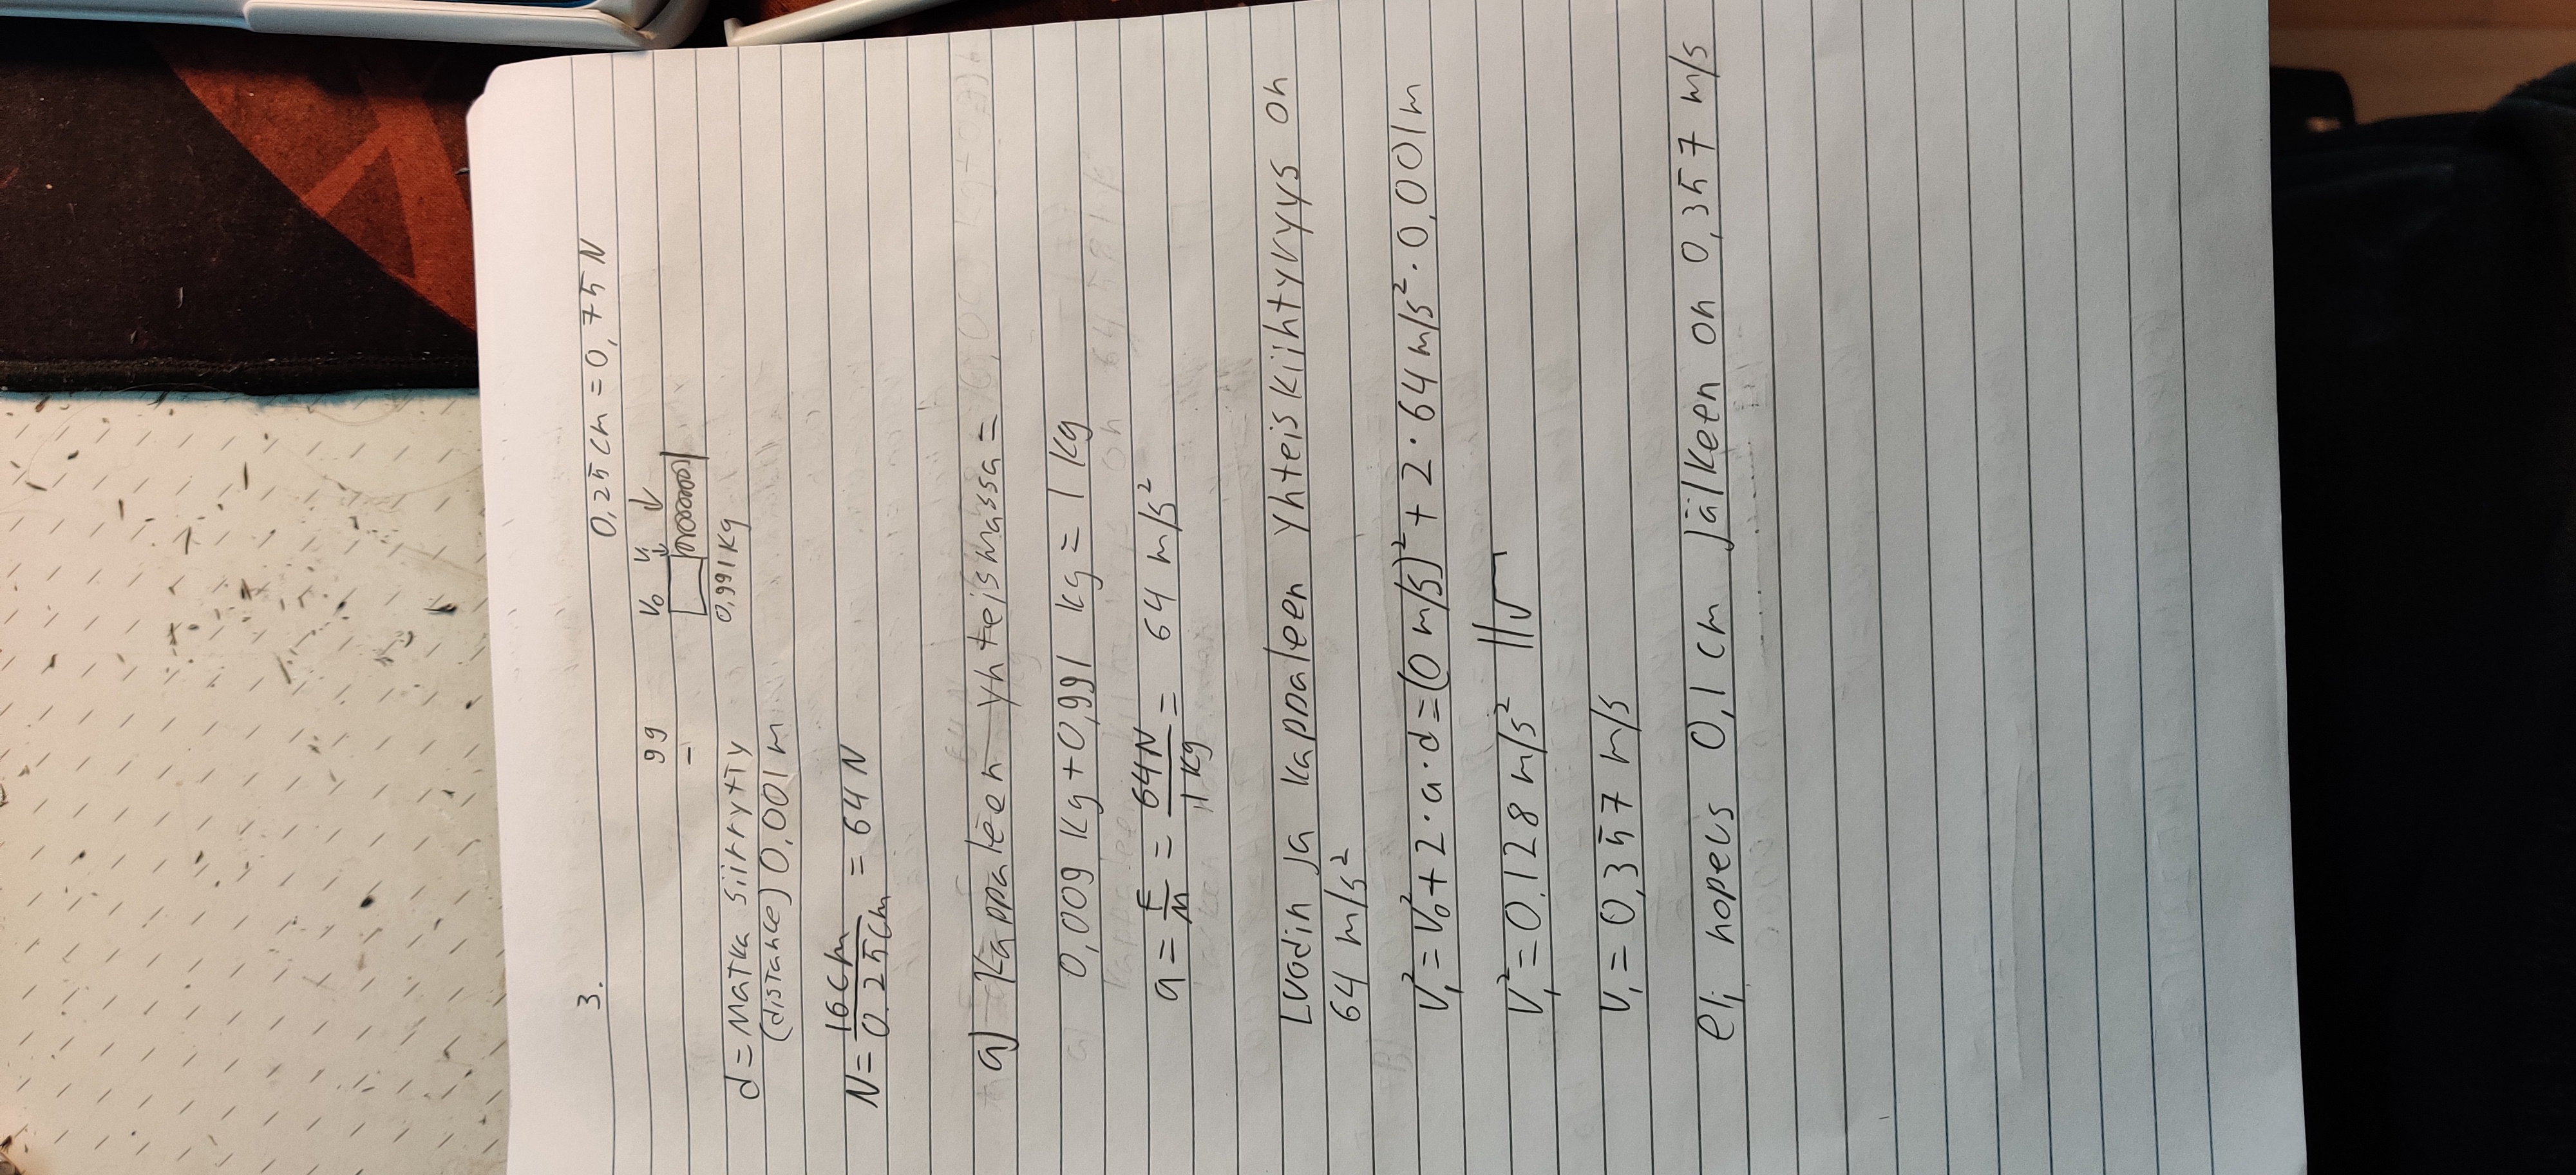 3.
0,25 cm = 0,75 N
9g V₀ V₁
0,991 kg
d = Matka siirrytty
(distance) 0,001 m
N = 16 cm / 0.25 cm = 64 N
a) Kappaleen yhteismassa =
0,009 kg + 0,991 kg = 1 kg
a = F/M = 64N / 1 kg = 64 m/s²
Luodin ja kappaleen yhteiskiihtyvyys on
64 m/s²
V₁² = V₀² + 2 · a · d = (0 m/s)² + 2 · 64 m/s² · 0,001 m
V₁² = 0.128 m/s² ||√
V₁ = 0,357 m/s
eli nopeus 0,1 cm jälkeen on 0,357 m/s